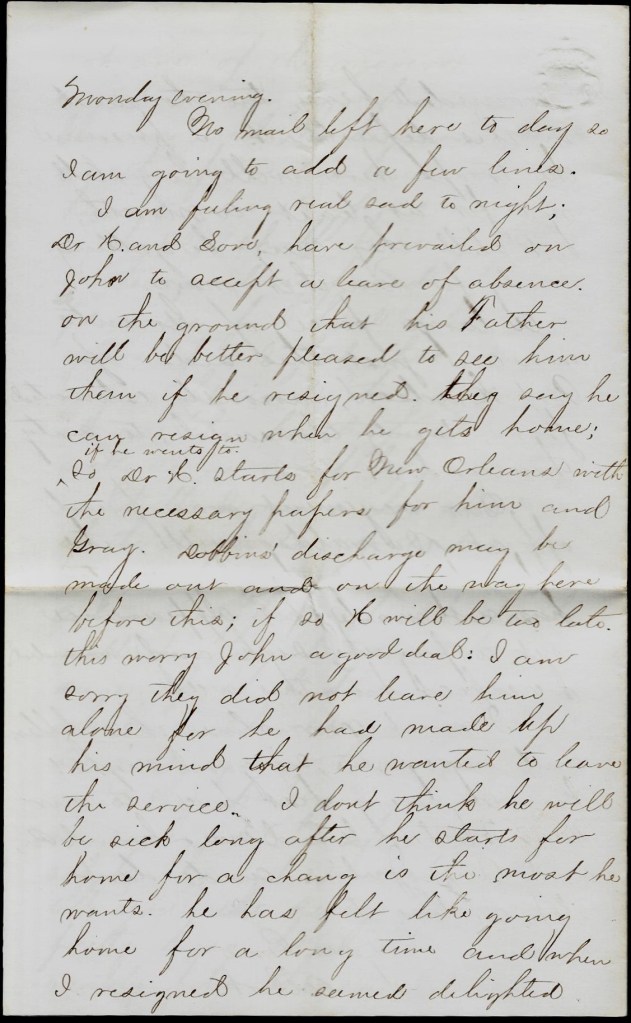 Monday evening.
No mail left here to day so
I am going to add a few lines.
I am feeling real sad to night;
Dr K. and Gove, have prevailed on
John to accept a leave of absence.
on the ground that his Father
will be better pleased to see him
them if he resigned. they say he
can resign when he gets home;
if he wants to.
so Dr K. starts for New Orleans with
the necessary papers for him and
Gray. Dobbins' discharge may be
made out and on the way here
before this; if so K will be too late.
this worry John a good deal: I am
sorry they did not leave him
alone for he had made up
his mind that he wanted to leave
the service. I dont think he will
be sick long after he starts for
home for a chang is the most he
wants. he has felt like going
home for a long time and when
I resigned he semed delighted